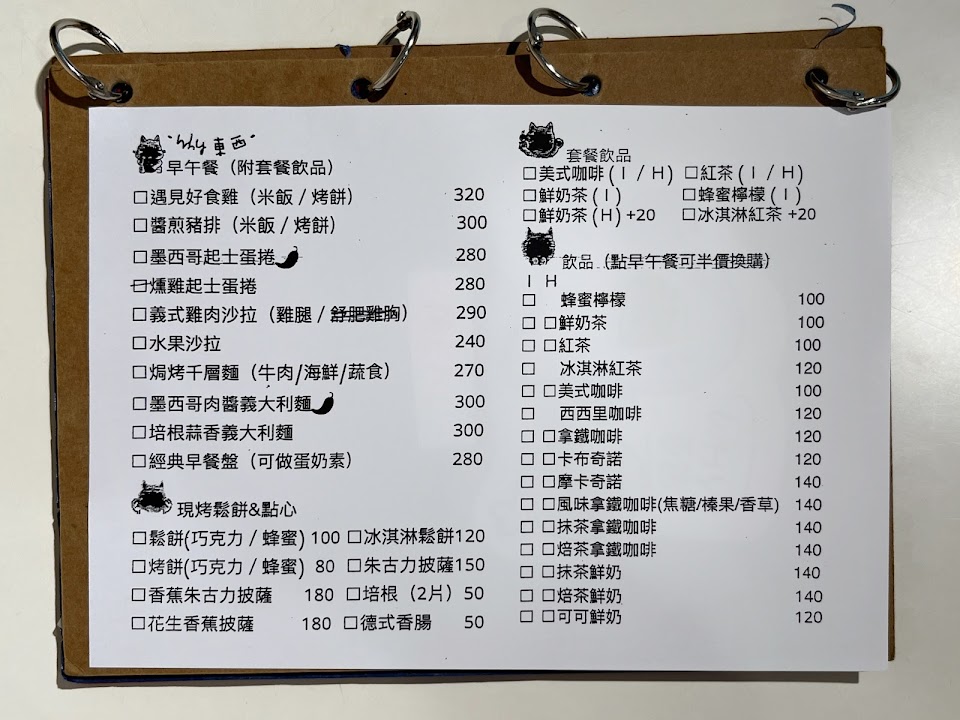 "why 東西"
早午餐（附套餐飲品）
□遇見好食雞（米飯 / 烤餅） 320
□醬煎豬排（米飯 / 烤餅） 300
□墨西哥起士蛋捲 280
□燻雞起士蛋捲 280
□義式雞肉沙拉（雞腿 / 舒肥雞胸） 290
□水果沙拉 240
□焗烤千層麵（牛肉/海鮮/蔬食） 270
□墨西哥肉醬義大利麵 300
□培根蒜香義大利麵 300
□經典早餐盤（可做蛋奶素） 280
現烤鬆餅&點心
□鬆餅(巧克力 / 蜂蜜) 100 □冰淇淋鬆餅120
□烤餅(巧克力 / 蜂蜜) 80 □朱古力披薩150
□香蕉朱古力披薩 180 □培根（2片）50
□花生香蕉披薩 180 □德式香腸 50
套餐飲品
□美式咖啡 ( I / H ) □紅茶 ( I / H )
□鮮奶茶 ( I ) □蜂蜜檸檬 ( I )
□鮮奶茶 (H) +20 □冰淇淋紅茶 +20
飲品（點早午餐可半價換購）
I H
□ 蜂蜜檸檬 100
□ □鮮奶茶 100
□ □紅茶 100
□ 冰淇淋紅茶 120
□ □美式咖啡 100
□ 西西里咖啡 120
□ □拿鐵咖啡 120
□ □卡布奇諾 120
□ □摩卡奇諾 140
□ □風味拿鐵咖啡(焦糖/榛果/香草) 140
□ □抹茶拿鐵咖啡 140
□ □焙茶拿鐵咖啡 140
□ □抹茶鮮奶 140
□ □焙茶鮮奶 140
□ □可可鮮奶 120